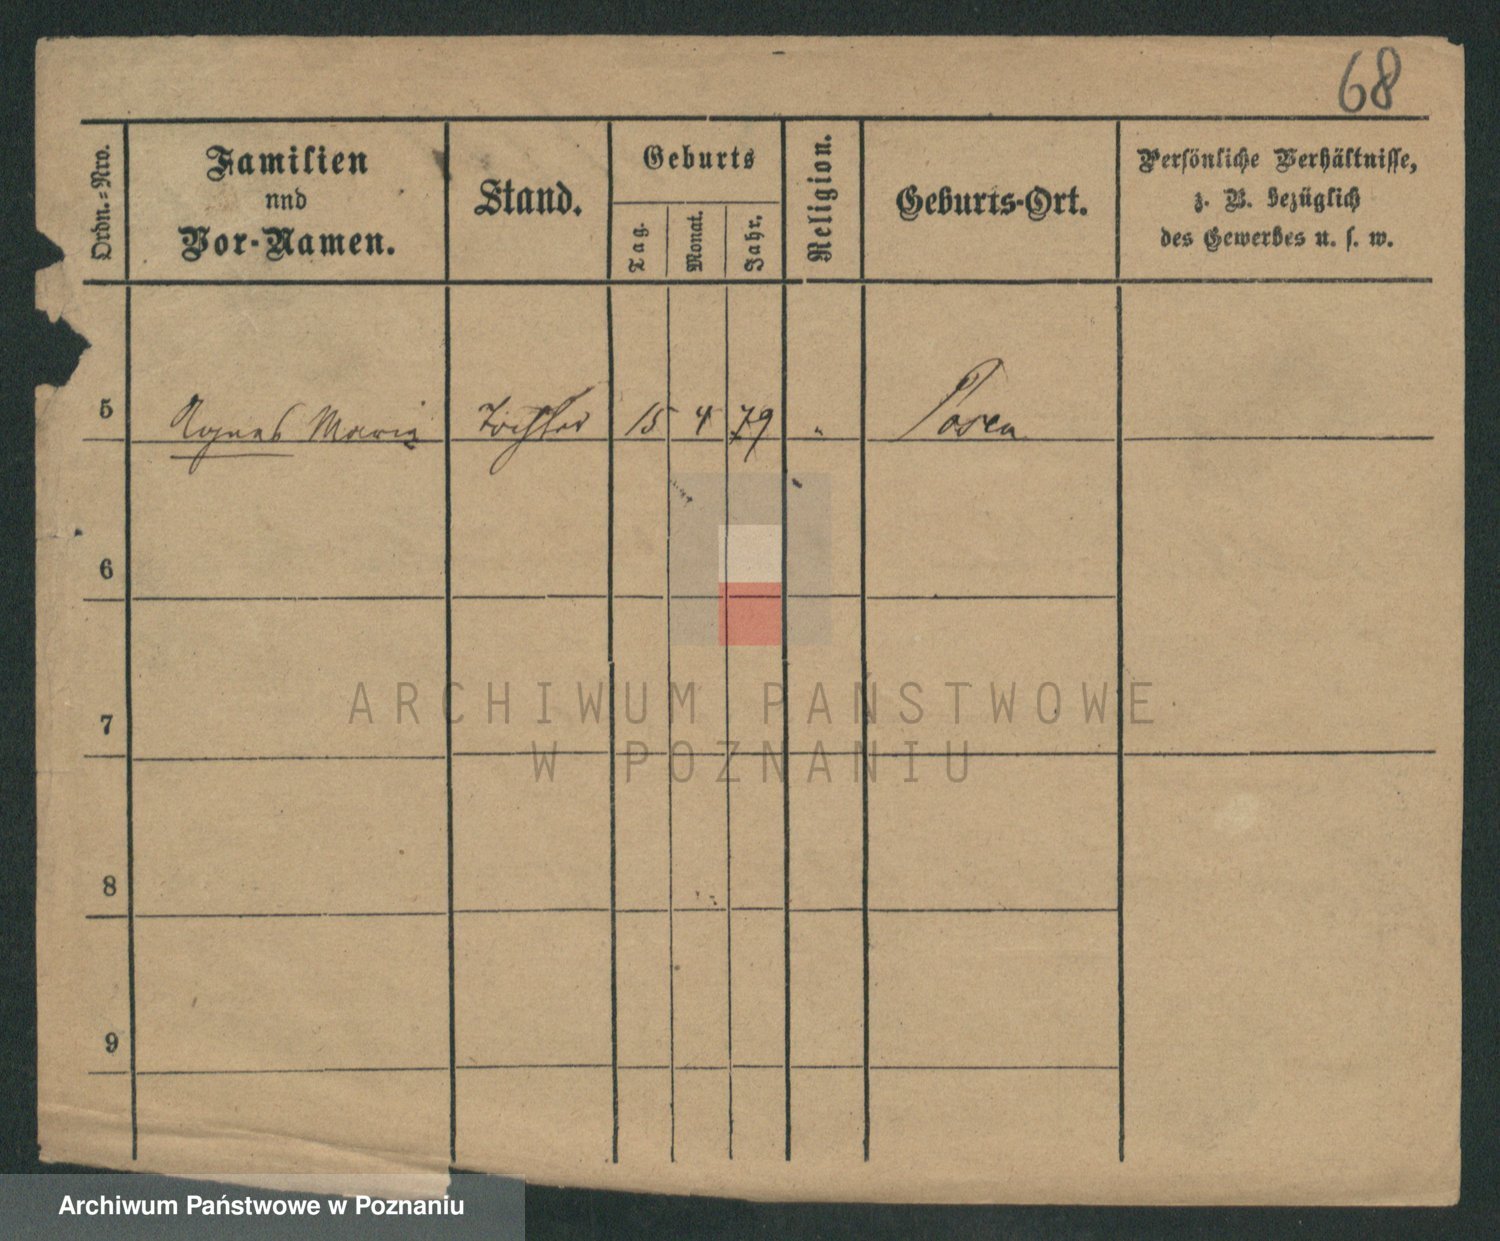 68
Ordn.-Nro.
Familien
und
Vor-Namen.
Stand.
Geburts
Tag.
Monat.
Jahr.
Religion.
Geburts-Ort.
Persönliche Verhältnisse,
z. B. bezüglich
des Gewerbes u. s. w.
5 Agnes Maria Tochter 15 4 79 " Posen
6
7
8
9
ARCHIWUM PAŃSTWOWE
W POZNANIU
Archiwum Państwowe w Poznaniu